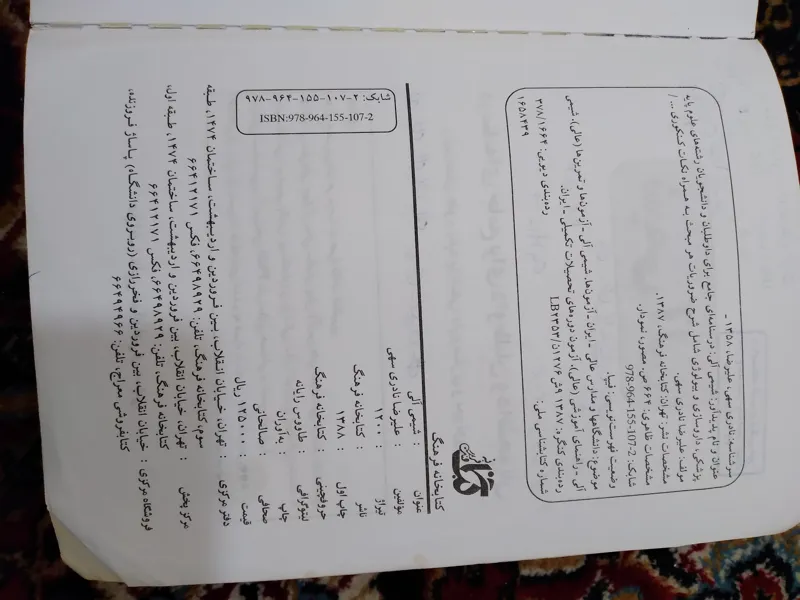 سرشناسه: نادری سهی، علیرضا، ۱۳۵۸ ـ
عنوان و نام پدیدآور: شیمی آلی: درسنامه‌ای جامع برای داوطلبان و دانشجویان رشته‌های علوم پایه
پزشکی، داروسازی و بیولوژی شامل شرح ضروریات هر مبحث به همراه نکات کنکوری ... /
مولف: علیرضا نادری سهی.
مشخصات نشر: تهران: کتابخانه فرهنگ، ۱۳۸۷.
مشخصات ظاهری: ۶۶۴ ص. مصور، نمودار.
شابک: 978-964-155-107-2
وضعیت فهرست نویسی: فیپا.
موضوع: دانشگاهها و مدارس عالی ـ ایران ـ آزمون‌ها. شیمی آلی ـ آزمون‌ها و تمرین‌ها (عالی). شیمی
آلی ـ راهنمای آموزشی (عالی). آزمون دوره‌های تحصیلات تکمیلی ـ ایران.
رده‌بندی کنگره: ۱۳۸۷ ۹ش ۲ن/LB۲۳۵۳ رده‌بندی دیویی: ۳۷۸/۱۶۶۴
شماره کتابشناسی ملی: ۱۶۵۸۴۳۹
کتابخانه فرهنگ
عنوان : شیمی آلی
مؤلفین : علیرضا نادری سهی
تیراژ : ۱۲۰۰
ناشر : کتابخانه فرهنگ
چاپ اول : ۱۳۸۸
حروفچینی : کتابخانه فرهنگ
لیتوگرافی : طاووس رایانه
چاپ : به‌آوران
صحافی : صالحانی
قیمت : ۱۲۵۰۰۰ ریال
شابک: ۲-۱۰۷-۱۵۵-۹۶۴-۹۷۸
ISBN:978-964-155-107-2
دفتر مرکزی : تهران، خیابان انقلاب، بین فروردین و اردیبهشت، ساختمان ۱۴۷۴، طبقه
سوم، کتابخانه فرهنگ، تلفن: ۶۶۴۹۸۹۲۹، فکس ۶۶۴۱۲۱۷۱
مرکز پخش : تهران، خیابان انقلاب، بین فروردین و اردیبهشت، ساختمان ۱۴۷۴، طبقه اول،
کتابخانه فرهنگ، تلفن: ۶۶۴۹۸۹۲۹، فکس ۶۶۴۱۲۱۷۱
فروشگاه مرکزی : خیابان انقلاب، بین فروردین و فخررازی (روبروی دانشگاه) پاساژ فروزنده،
کتابفروشی معراج، تلفن: ۶۶۴۹۴۹۶۶